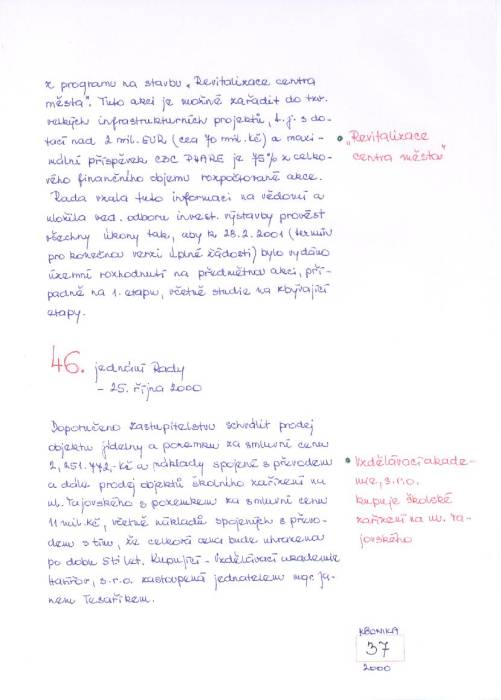 z programu na stavbu „Revitalizace centra
města". Tuto akci je možné zařadit do tzv.
velkých infrastrukturních projektů, t.j. s do-
tací nad 2 mil. EUR (cca 70 mil. kč) a maxi-
mální příspěvek CBC PHARE je 75% z celko-
vého finančního objemu rozpočtované akce.
Rada vzala tuto informaci na vědomí a
uložila ved. odboru invest. výstavby provést
všechny úkony tak, aby k 28.2.2001 (termín
pro konečnou verzi úplné žádosti) bylo vydáno
územní rozhodnutí na předmětnou akci, pří-
padně na 1. etapu, včetně studie na zbývající
etapy.
„Revitalizace
centra města"
46. jednání Rady
- 25. října 2000
Doporučeno zastupitelstvu schválit prodej
objektu jídelny a pozemku za smluvní cenu
2,251.772,-Kč a náklady spojené s převodem
a dále prodej objektů školního zařízení na
ul. Tajovského s pozemkem za smluvní cenu
11 mil. kč, včetně nákladů spojených s převo-
dem s tím, že celková cena bude uhrazena
po dobu šti let. Kupující - Vzdělávací akademie
s.r.o. zastoupená jednatelem mgr. Ja-
nem Tesaříkem.
Vzdělávací akade-
mie, s.r.o.
kupuje školské
zařízení na ul. Ta-
jovského
KRONIKA
37
2000